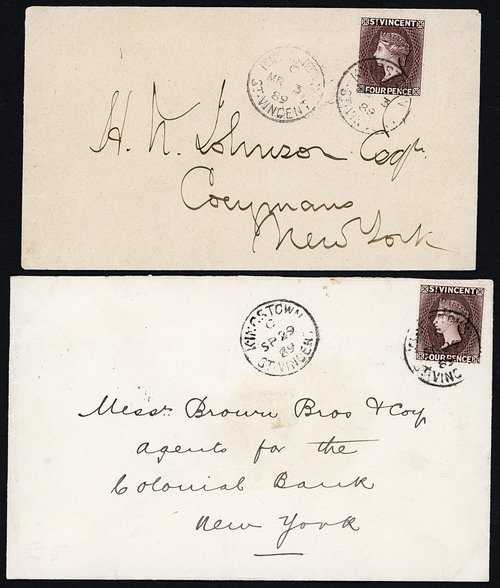 ST VINCENT
FOUR PENCE
KINGSTOWN
C
MR 3
89
ST. VINCENT
89
H. N. Johnson Esqr.
Coeymans
New York
ST VINCENT
FOUR PENCE
KINGSTOWN
C
SP 29
89
ST. VINCENT
89
ST. VINC
Messrs Brown Bros & Coy
Agents for the
Colonial Bank
New York